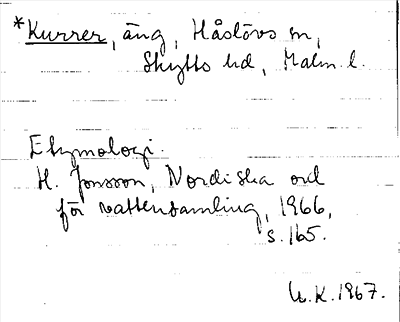 *Kurrer, äng, Håslövs sn,
Skytts hd, Malm. l.
Etymologi.
H. Jonsson, Nordiska ord
för vattensamling, 1966,
s. 165.
U.K. 1967.